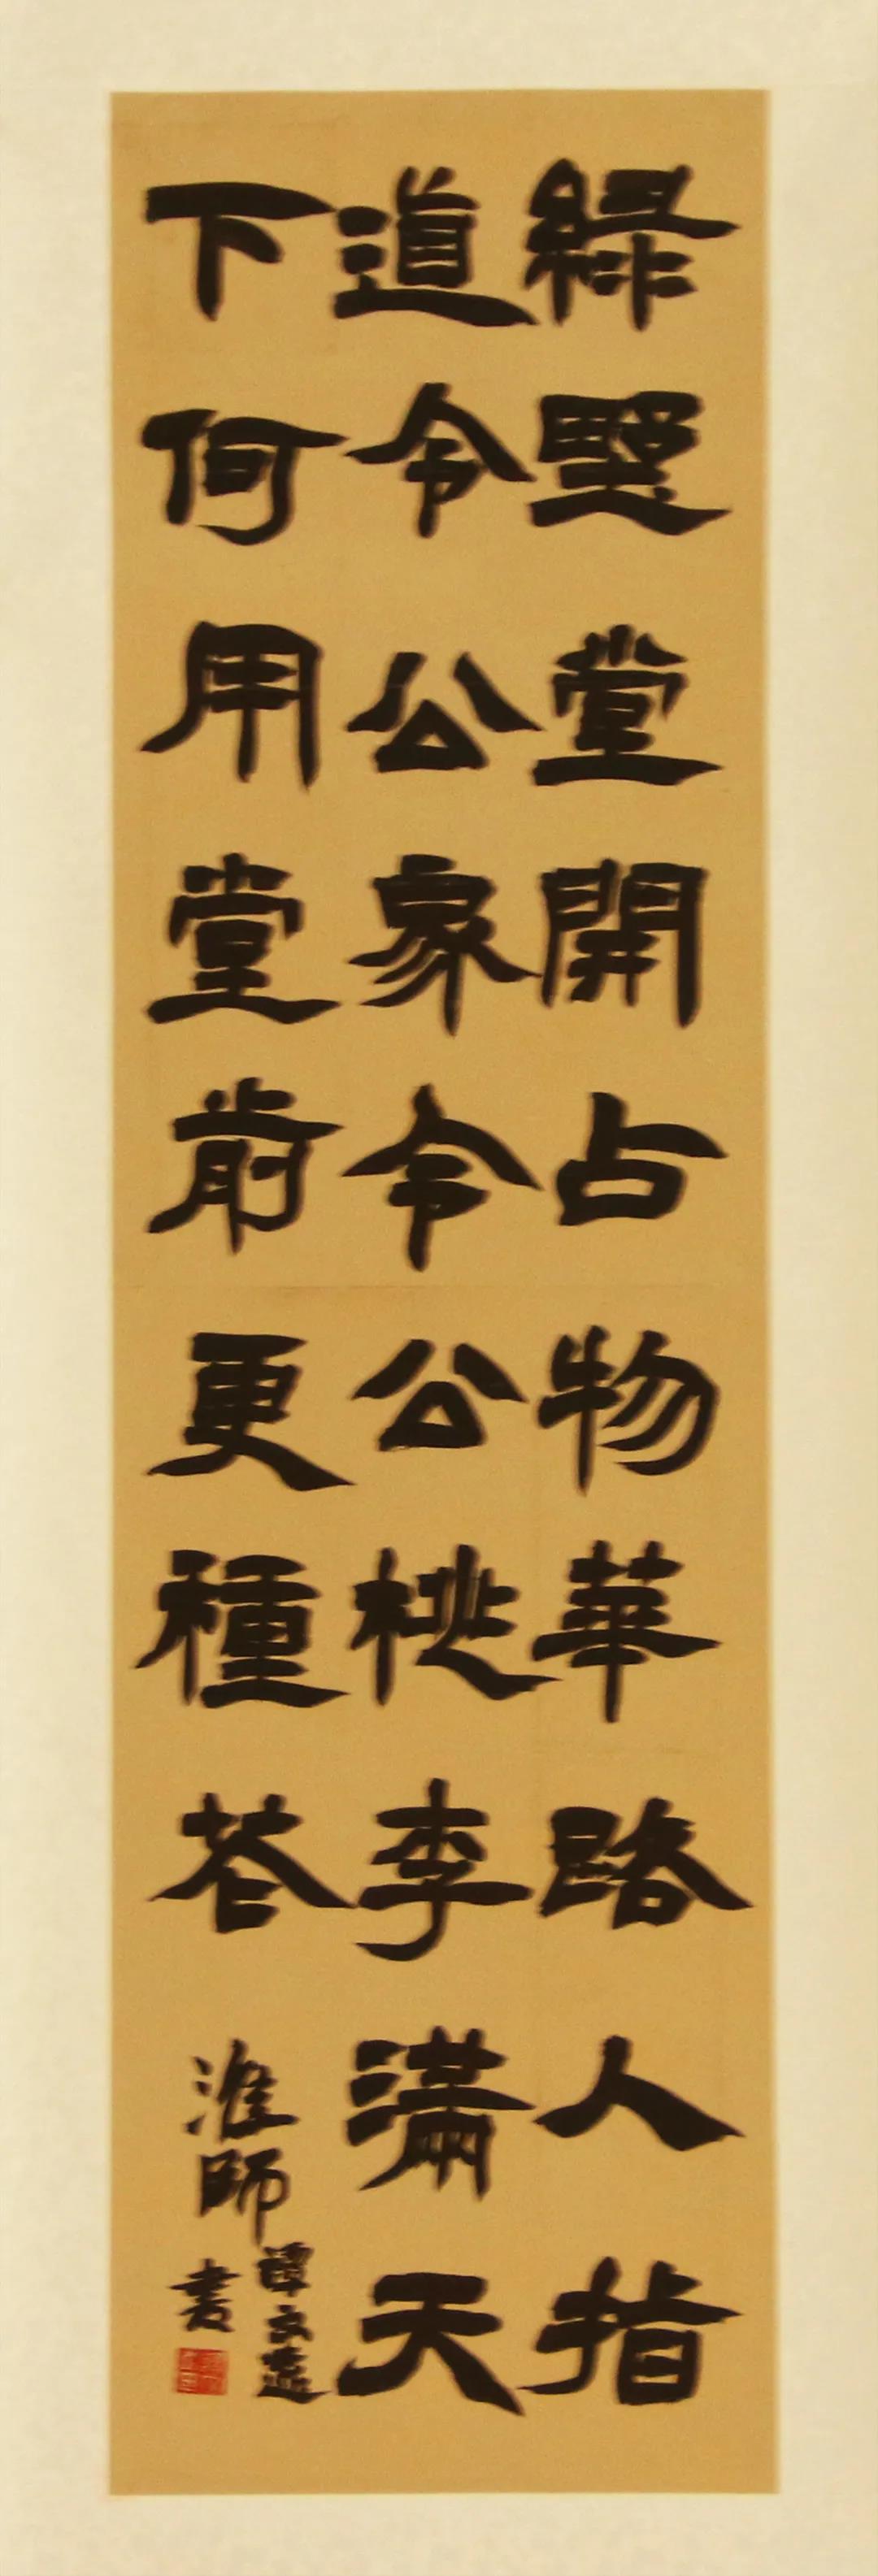 緑墅堂開占物華路人指
道令公家令公桃李滿天
下何用堂前更種花
淮師
譚
書